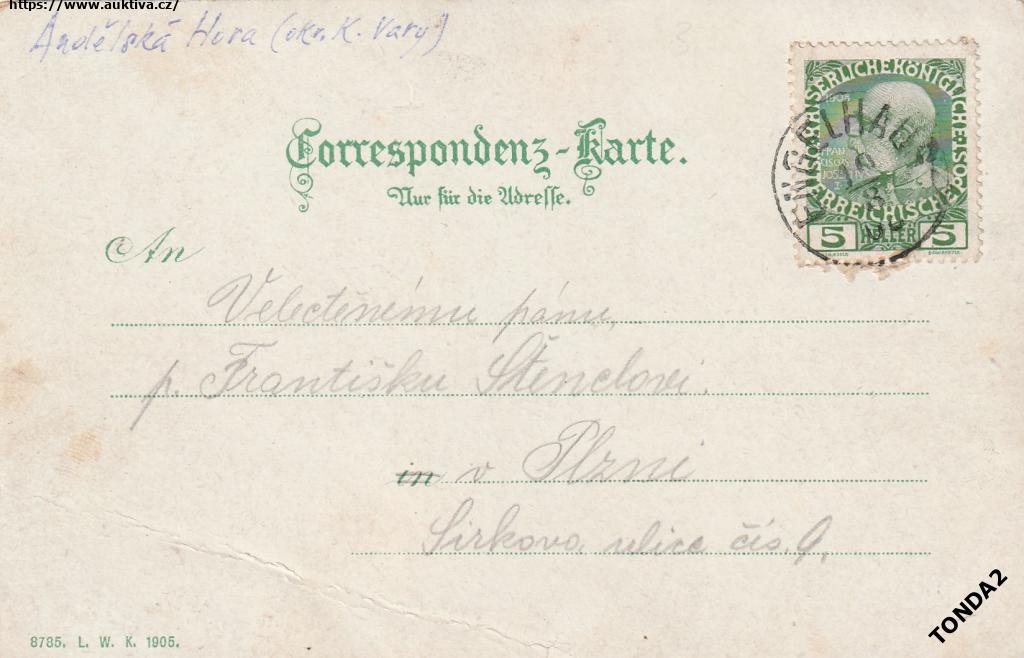 https://www.auktiva.cz/
Andělská Hora (okr. K. Vary)
Correspondenz-Karte.
Nur für die Adresse.
An
Velectěnému pánu,
p. Františku Štenclovi.
in v Plzni
Sirkova ulice čís. 9,
KAISERLICHEKÖNIGLICHE
ÖSTERREICHISCHE POST
1908
FRAN
JOSEF
5 HELLER 5
ENGELHAUS
8785. L. W. K. 1905.
TONDA2